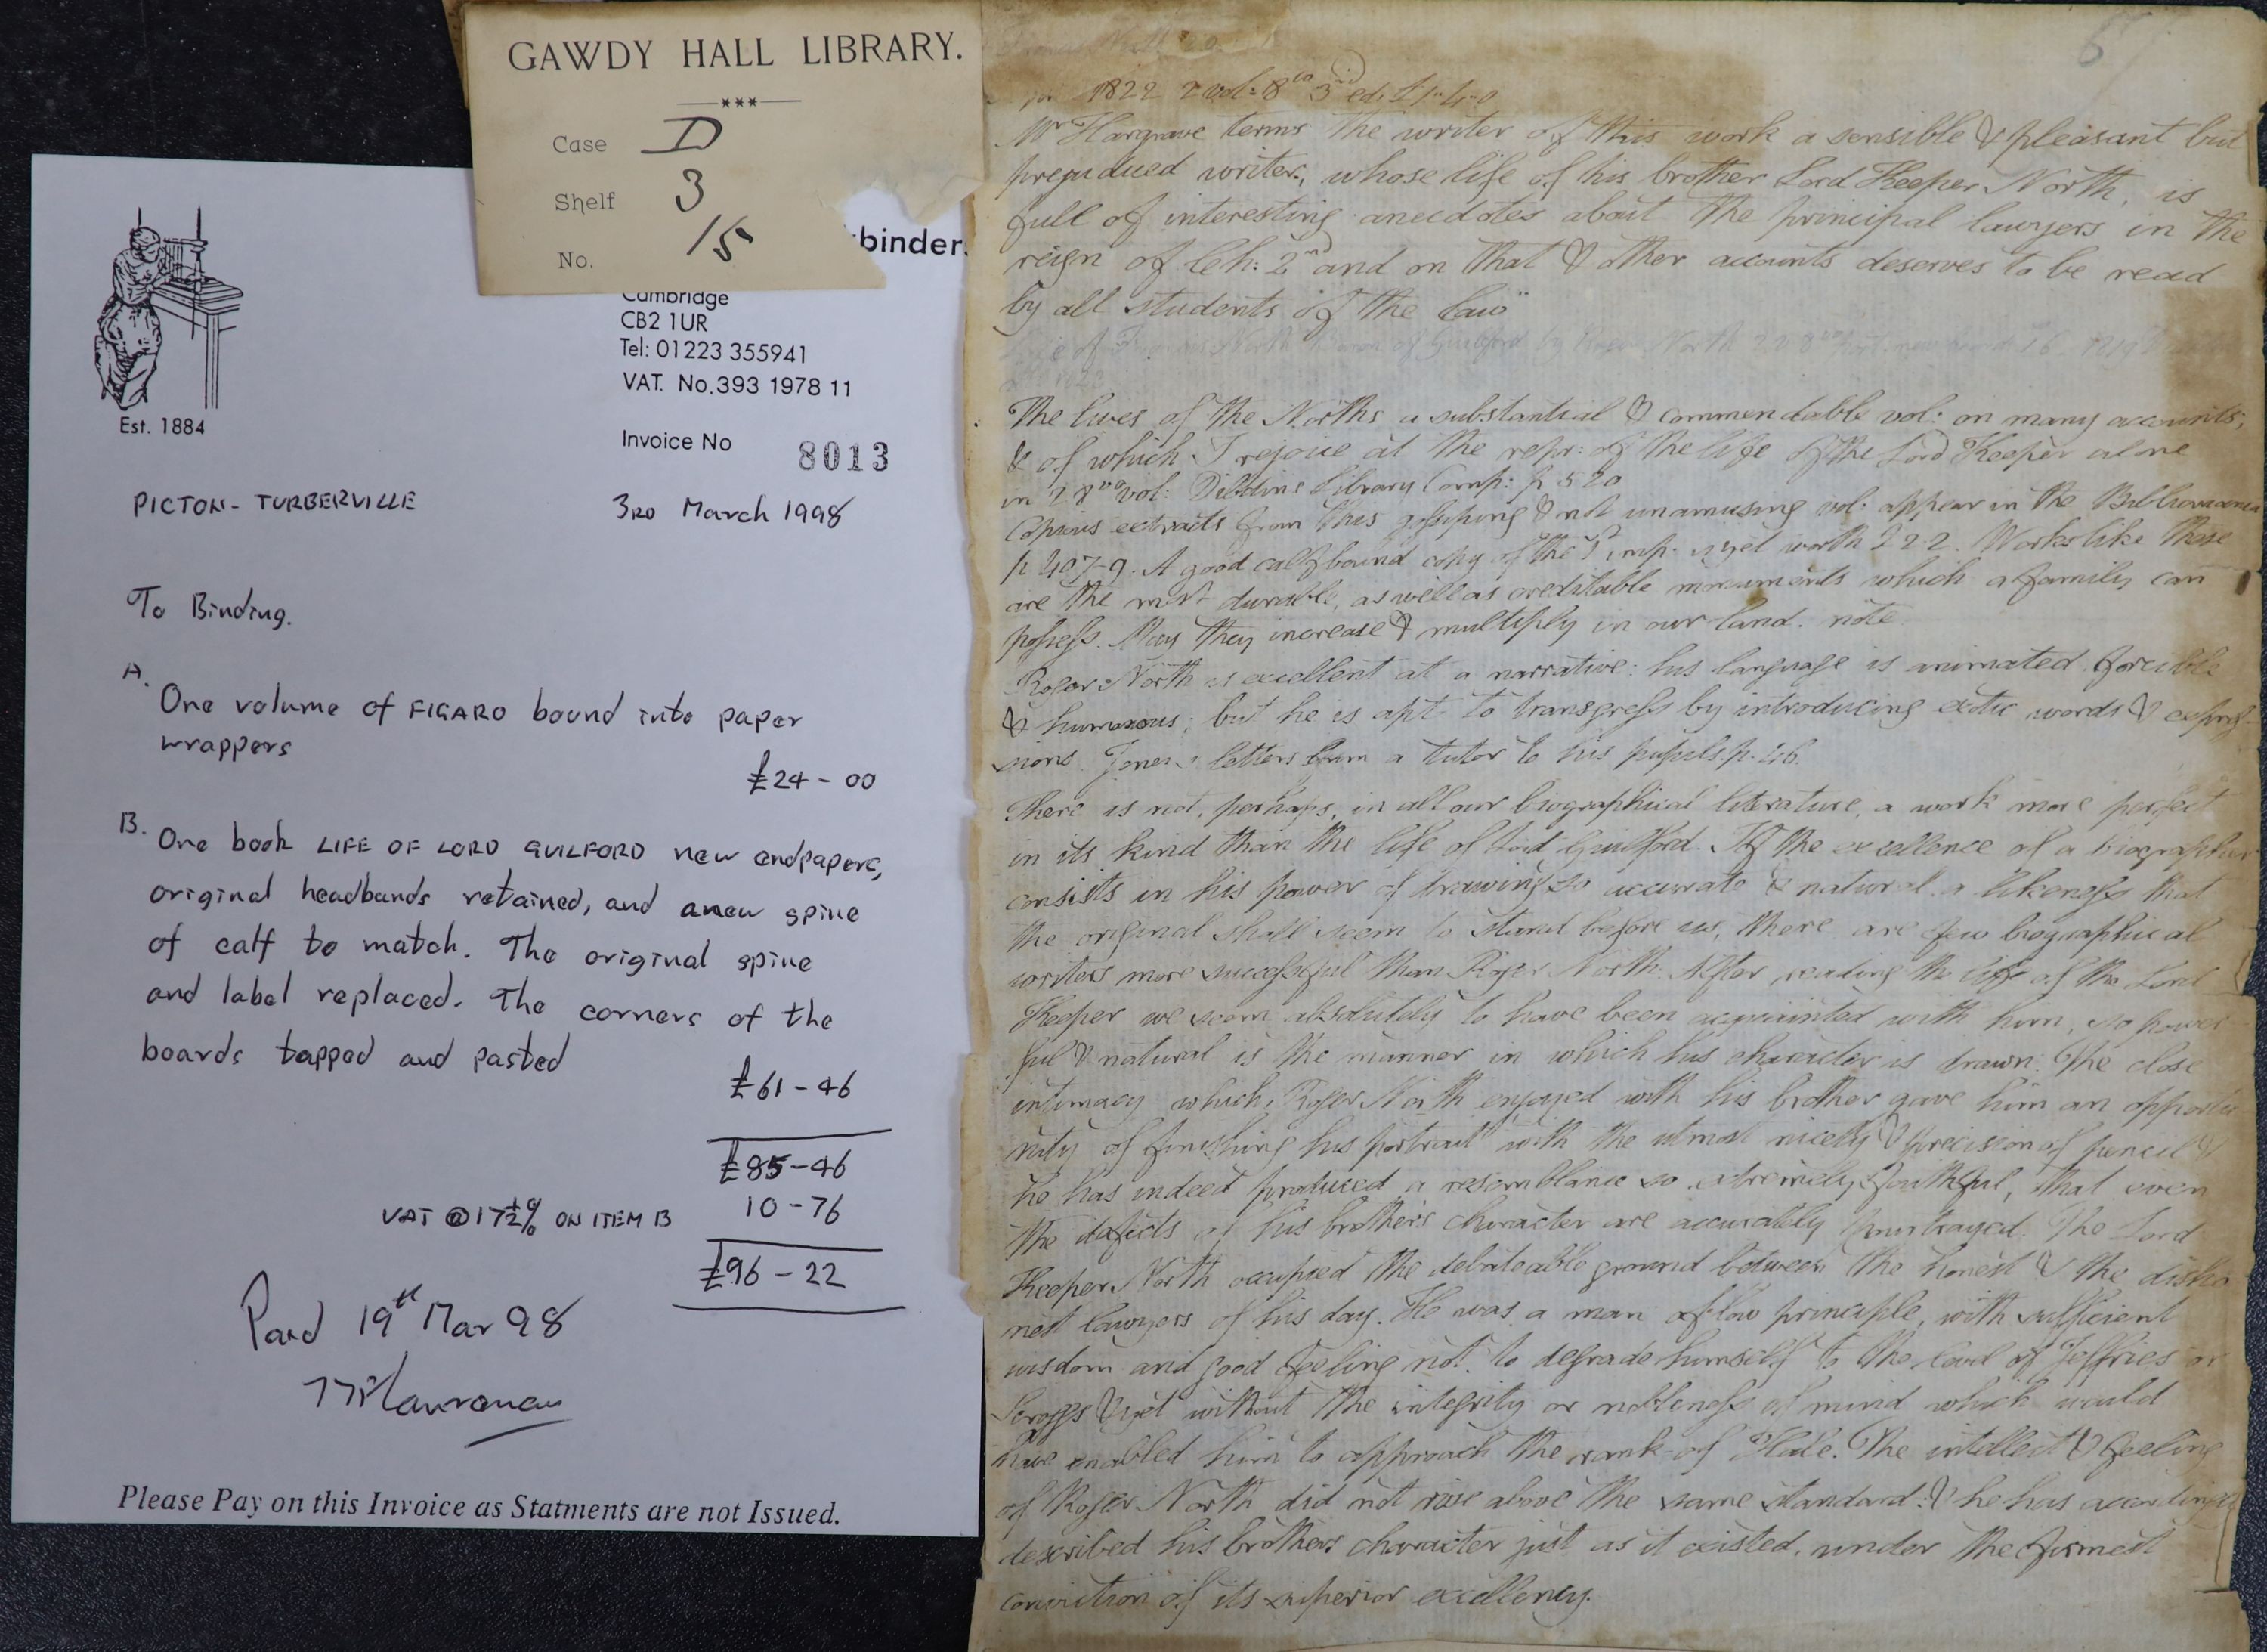 GAWDY HALL LIBRARY.
Case D
Shelf 3
No. 15
binders
Cambridge
CB2 1UR
Tel: 01223 355941
VAT. No.393 1978 11
Est. 1884
Invoice No 8013
PICTON-TURBERVILLE 3RD March 1998
To Binding.
A.
One volume of FIGARO bound into paper
wrappers
£24-00
B.
One book LIFE OF LORD GUILFORD new endpapers,
original headbands retained, and a new spine
of calf to match. The original spine
and label replaced. The corners of the
boards tapped and pasted
£61-46
£85-46
VAT @ 17½% ON ITEM B 10-76
£96-22
Paid 19th Mar 98
Please Pay on this Invoice as Statments are not Issued.
67
1822 2 vol: 8vo 3rd ed: £1-4-0
Mr Hargrave terms the writer of this work a sensible & pleasant but
prejudiced writer, whose life of his brother Lord Keeper North, is
full of interesting anecdotes about the principal lawyers in the
reign of Ch: 2nd and on that & other accounts deserves to be read
by all students of the law"
The lives of the Norths a substantial & commendable vol: on many accounts,
& of which I rejoice at the repr: of the life of the Lord Keeper alone
in 2 8vo vol: Dibdins Library Comp: p 520
Copious extracts from this gossiping & not unamusing vol: appear in the Bibliomania
p 407-9. A good calf bound copy of the 1st imp. is yet worth £2.2. Works like these
are the most durable, as well as creditable monuments which a family can
possess. May they increase & multiply in our land. note
Roger North is excellent at a narrative: his language is animated forcible
& humorous; but he is apt to transgress by introducing exotic words & expres-
sions. Jones's letters from a tutor to his pupils. p. 46.
There is not, perhaps, in all our biographical literature, a work more perfect
in its kind than the life of Lord Guilford. If the excellence of a biographer
consists in his power of drawing so accurate & natural a likeness that
the original shall seem to stand before us, there are few biographical
writers more successful than Roger North. After reading the life of the Lord
Keeper we seem absolutely to have been acquainted with him, so power-
ful & natural is the manner in which his character is drawn. The close
intimacy which Roger North enjoyed with his brother gave him an opportu-
nity of finishing his portrait with the utmost nicety & precision of pencil &
he has indeed produced a resemblance so extremely faithful, that even
the defects of his brothers character are accurately pourtrayed. The Lord
Keeper North occupied the debateable ground between the honest & the disho-
nest lawyers of his day. He was a man of low principle, with sufficient
wisdom and good feeling not to degrade himself to the level of Jeffries or
Scroggs & yet without the integrity or nobleness of mind which would
have enabled him to approach the rank of Hale. The intellect & feeling
of Roger North did not rise above the same standard: & he has accordingly
described his brothers character just as it existed, under the firmest
conviction of its superior excellency.